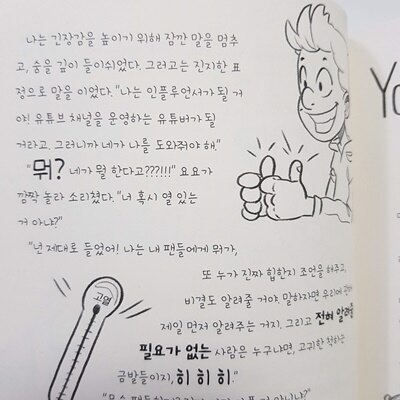 나는 긴장감을 높이기 위해 잠깐 말을 멈추
고, 숨을 깊이 들이쉬었다. 그러고는 진지한 표
정으로 말을 이었다. "나는 인플루언서가 될 거
야! 유튜브 채널을 운영하는 유튜버가 될
거라고. 그러니까 네가 나를 도와줘야 해."
"뭐? 네가 뭘 한다고???!!!" 요요가
깜짝 놀라 소리쳤다. "너 혹시 열 있는
거 아냐?"
"넌 제대로 들었어! 나는 내 팬들에게 뭐가,
또 누가 진짜 힙한지 조언을 해주고,
비결도 알려줄 거야. 말하자면 우리에 관해
제일 먼저 알려주는 거지. 그리고 전혀 알려줄
필요가 없는 사람은 누구냐면, 고귀한 척하는
금발들이지, 히 히 히."
고열
Yo